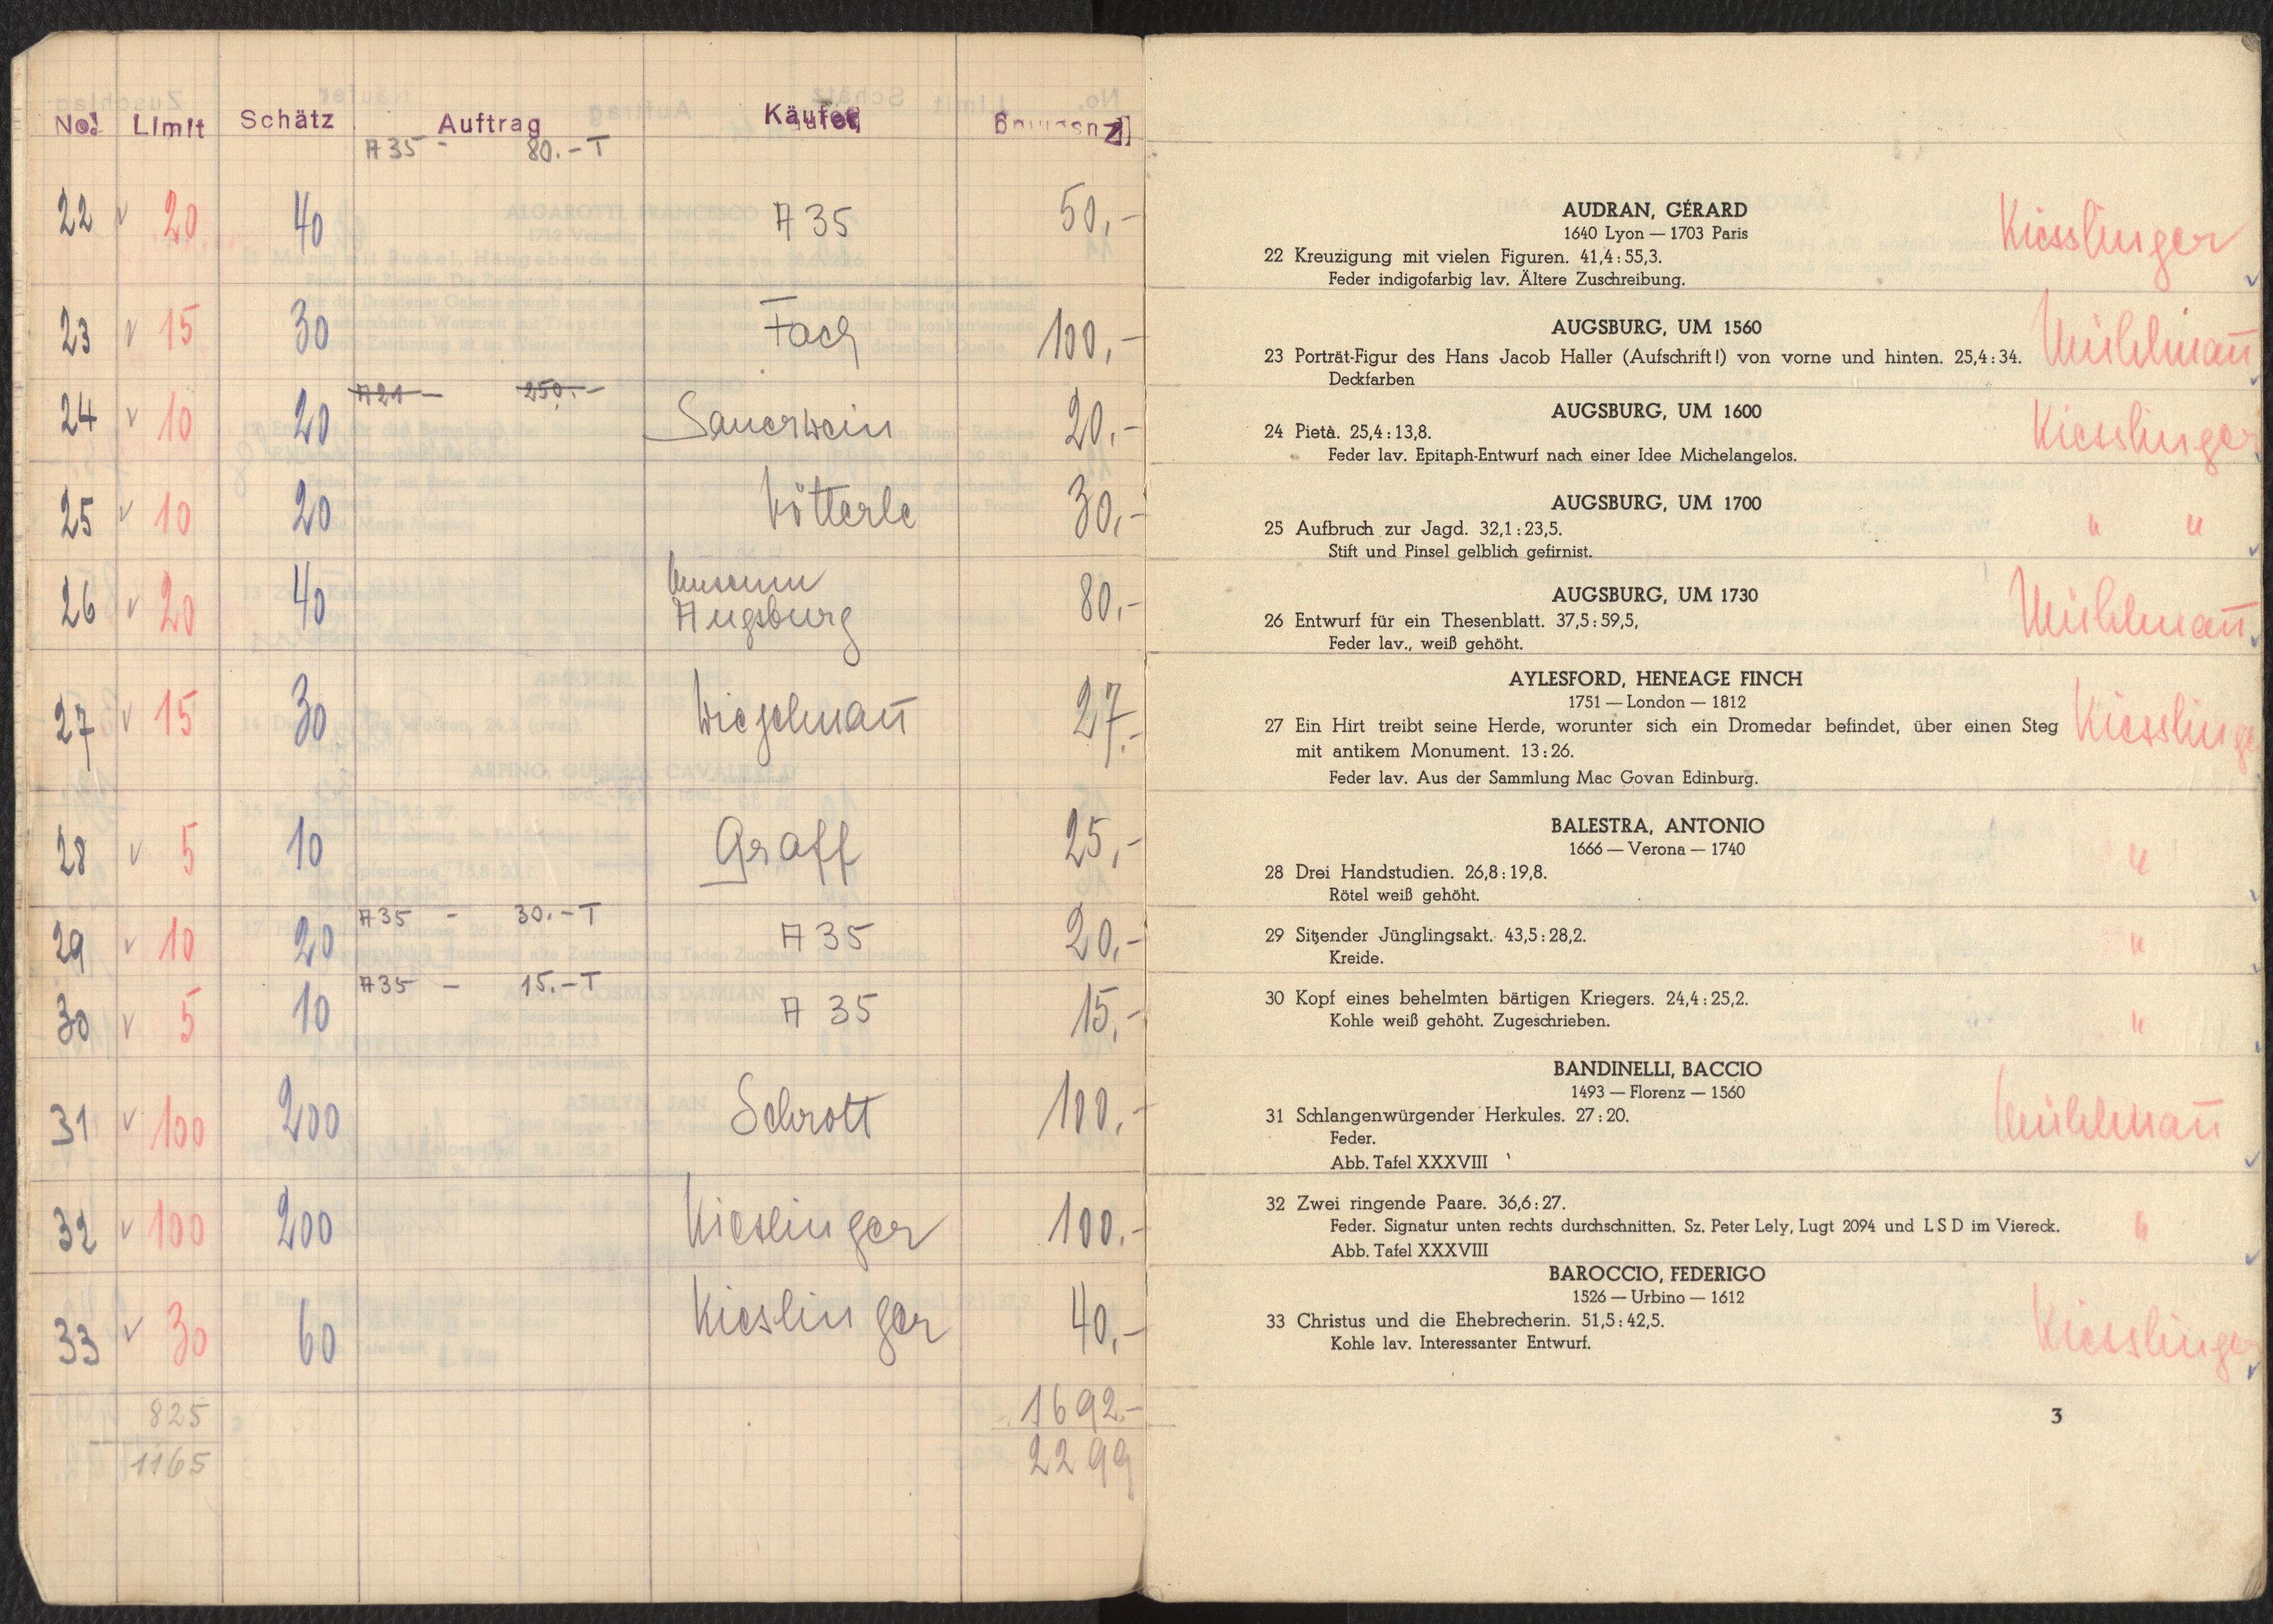 No. Limit Schätz Auftrag Käufer
A 35 - 80.- T
22 v 20 40 A 35 50,-
23 v 15 30 Fach 100,-
A21 - 250.-
24 v 10 20 Sauerwein 20,-
25 v 10 20 Kötterle 30,-
26 v 20 40 Museum
Augsburg 80,-
27 v 15 30 Wiegelmañ 27.-
28 v 5 10 Graff 25,-
A 35 - 30.- T
29 v 10 20 A 35 20,-
A35 - 15.- T
30 v 5 10 A 35 15,-
31 v 100 200 Schrott 100.-
32 v 100 200 Kieslinger 100.-
33 v 30 60 Kieslinger 40,-
825 1692.-
1165 2299
AUDRAN, GÉRARD
1640 Lyon — 1703 Paris
Kiesslinger
22 Kreuzigung mit vielen Figuren. 41,4 : 55,3.
Feder indigofarbig lav. Ältere Zuschreibung.
AUGSBURG, UM 1560
Mühlmañ
23 Porträt-Figur des Hans Jacob Haller (Aufschrift!) von vorne und hinten. 25,4 : 34.
Deckfarben
AUGSBURG, UM 1600
Kiesslinger
24 Pietà. 25,4 : 13,8.
Feder lav. Epitaph-Entwurf nach einer Idee Michelangelos.
AUGSBURG, UM 1700
25 Aufbruch zur Jagd. 32,1 : 23,5.
" "
Stift und Pinsel gelblich gefirnist.
AUGSBURG, UM 1730
Mühlmañ
26 Entwurf für ein Thesenblatt. 37,5 : 59,5,
Feder lav., weiß gehöht.
AYLESFORD, HENEAGE FINCH
1751 — London — 1812
27 Ein Hirt treibt seine Herde, worunter sich ein Dromedar befindet, über einen Steg
Kiesslinge
mit antikem Monument. 13 : 26.
Feder lav. Aus der Sammlung Mac Govan Edinburg.
BALESTRA, ANTONIO
1666 — Verona — 1740
"
28 Drei Handstudien. 26,8 : 19,8.
Rötel weiß gehöht.
29 Sitzender Jünglingsakt. 43,5 : 28,2.
"
Kreide.
30 Kopf eines behelmten bärtigen Kriegers. 24,4 : 25,2.
Kohle weiß gehöht. Zugeschrieben.
"
BANDINELLI, BACCIO
1493 — Florenz — 1560
31 Schlangenwürgender Herkules. 27 : 20.
Mühlmañ
Feder.
Abb. Tafel XXXVIII
32 Zwei ringende Paare. 36,6 : 27.
Feder. Signatur unten rechts durchschnitten. Sz. Peter Lely, Lugt 2094 und L S D im Viereck.
"
Abb. Tafel XXXVIII
BAROCCIO, FEDERIGO
1526 — Urbino — 1612
33 Christus und die Ehebrecherin. 51,5 : 42,5.
Kiesslinger
Kohle lav. Interessanter Entwurf.
3